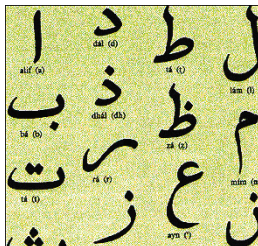 ا
alif (a)
ب
bá (b)
ت
tá (t)
د
dál (d)
ذ
dhál (dh)
ر
rá (r)
ز
ط
tá (ṭ)
ظ
zá (ẓ)
ع
ayn (')
ل
lám (l)
م
mím